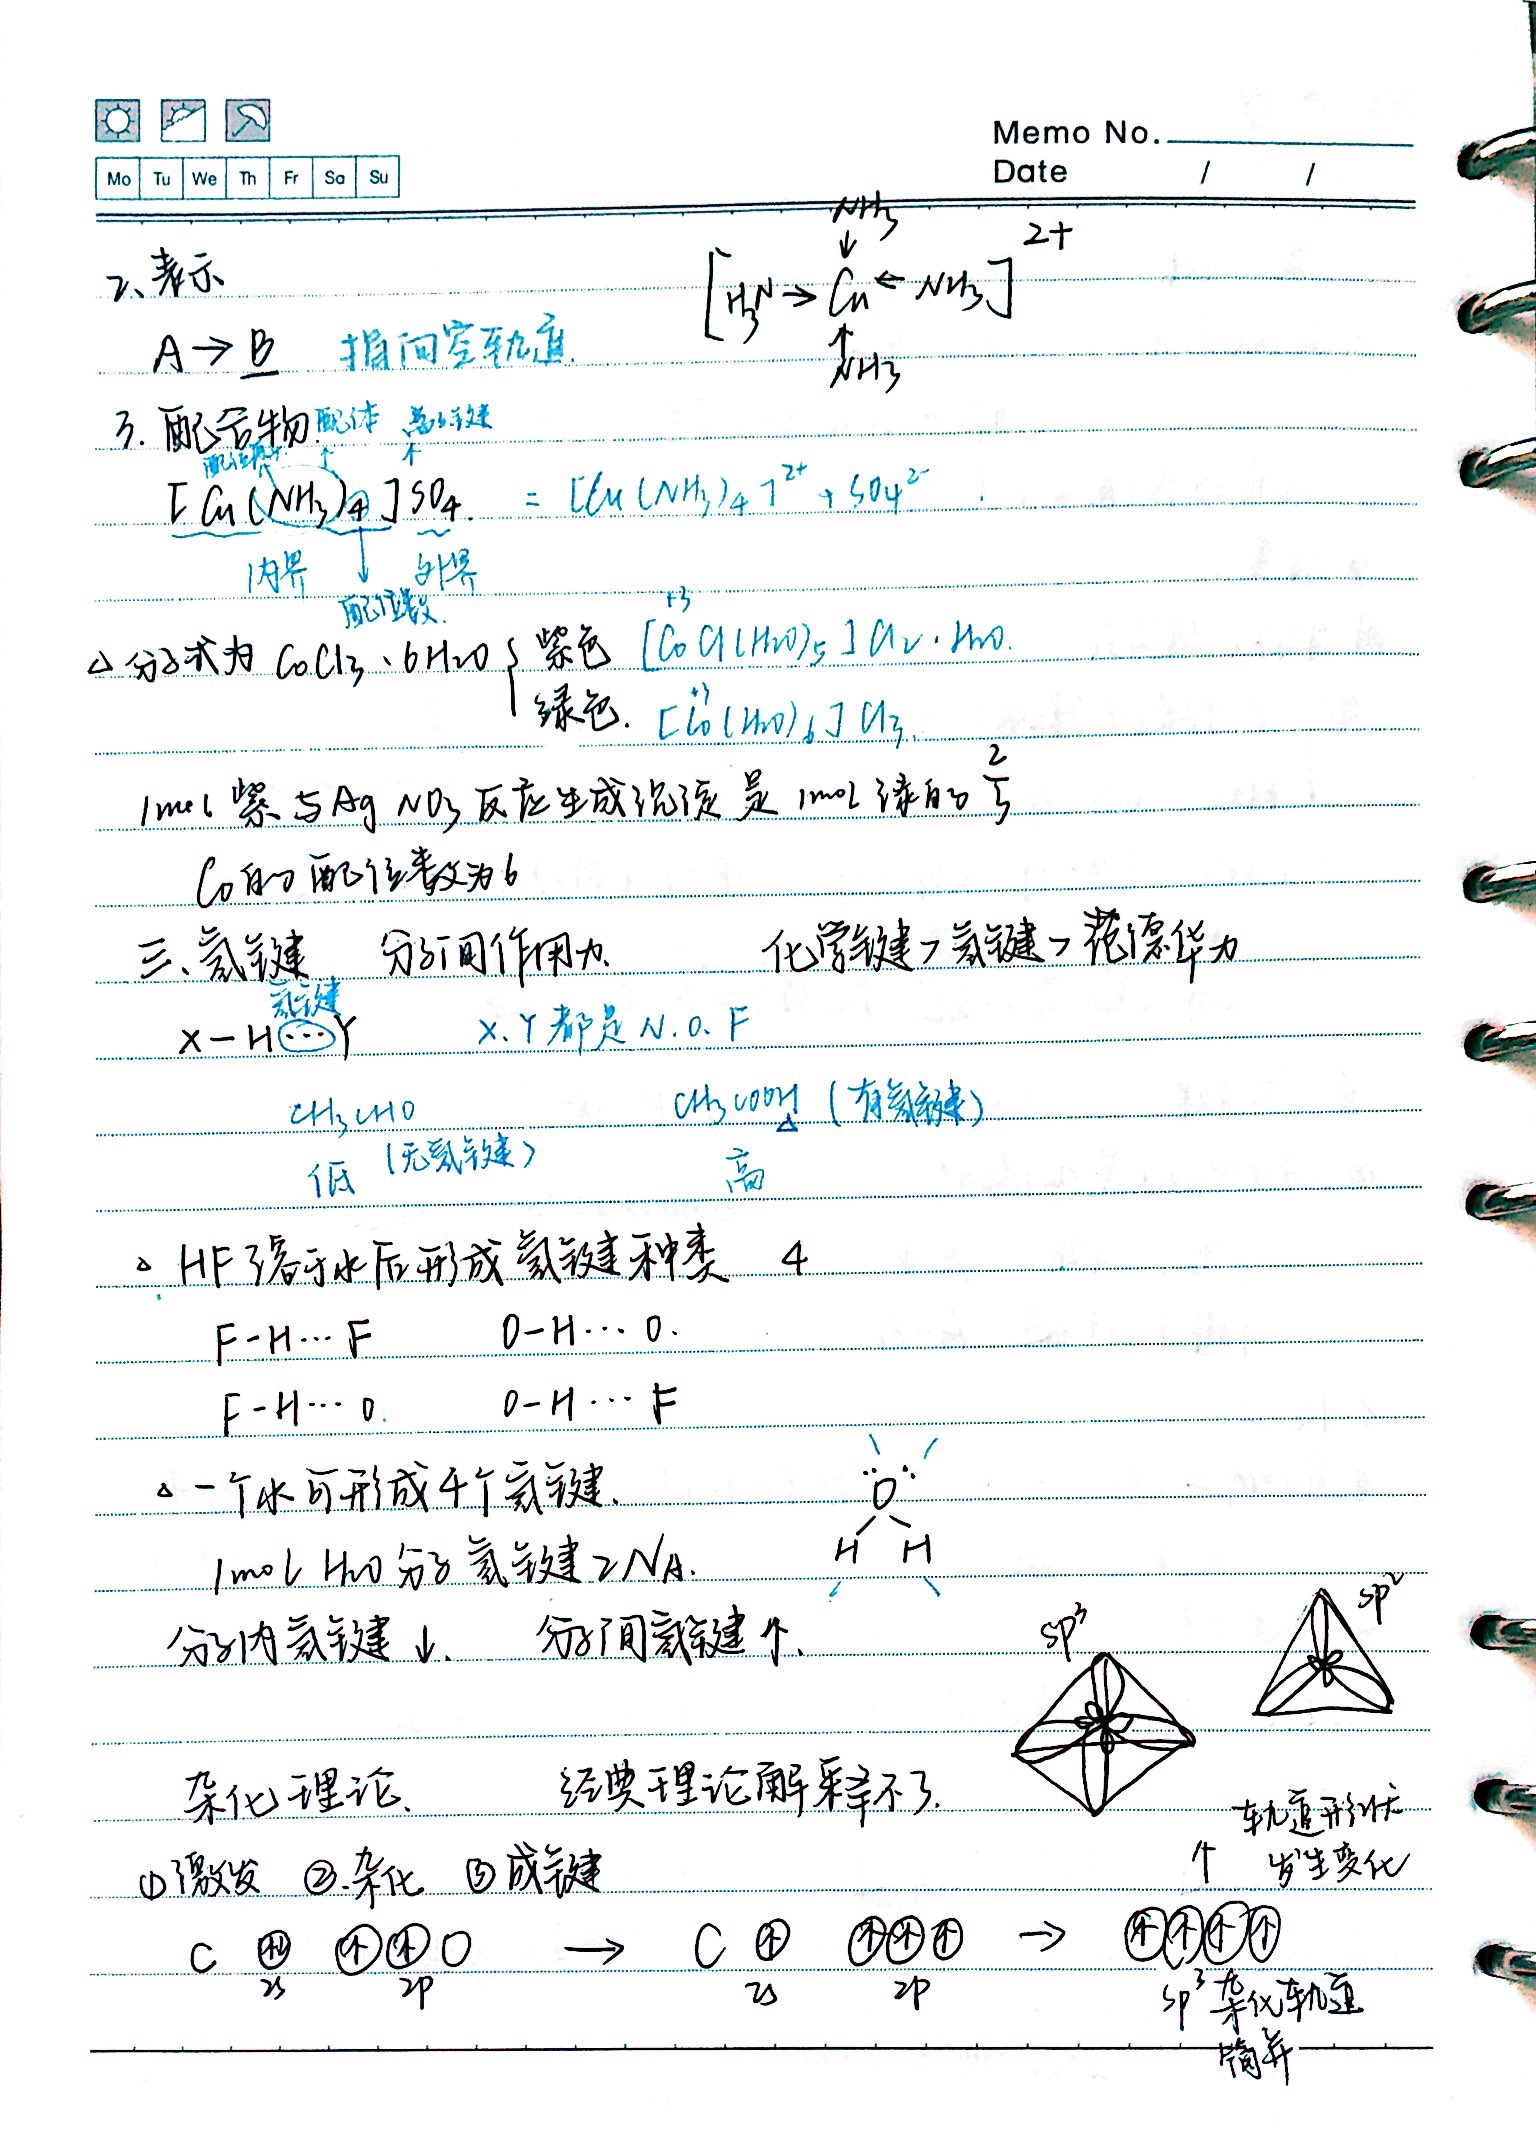 Memo No.
Mo Tu We Th Fr Sa Su
Date / /
2、表示
[H₃N→Cu←NH₃]²⁺
NH₃
↓
↑
NH₃
A→B 指向空轨道.
3. 配合物. 配体 离子键
[Cu(NH₃)₄]SO₄. = [Cu(NH₃)₄]²⁺ + SO₄²⁻
内界 外界
配位数.
△ 分子式为 CoCl₃·6H₂O { 紫色 [CoCl(H₂O)₅]Cl₂·H₂O.
+3
绿色. [Co(H₂O)₆]Cl₃.
+3
1mol 紫与AgNO₃反应生成沉淀是1mol绿的2/3
Co的配位数为6
三、氢键 分子间作用力. 化学键>氢键>范德华力
氢键
X－H···Y X、Y都是N.O.F
CH₃CHO CH₃COOH (有氢键)
△
低 (无氢键) 高
△ HF溶于水后形成氢键种类 4
F-H···F O-H···O.
F-H···O. O-H···F
△ 一个水可形成4个氢键.
O
H H
1mol H₂O分子氢键2NA.
分子内氢键↓. 分子间氢键↑.
sp³ sp²
杂化理论. 经典理论解释不了.
轨道形状
发生变化
↑
①激发 ②.杂化 ③成键
C 2s 2p → C 2s 2p →
sp³杂化轨道
简并